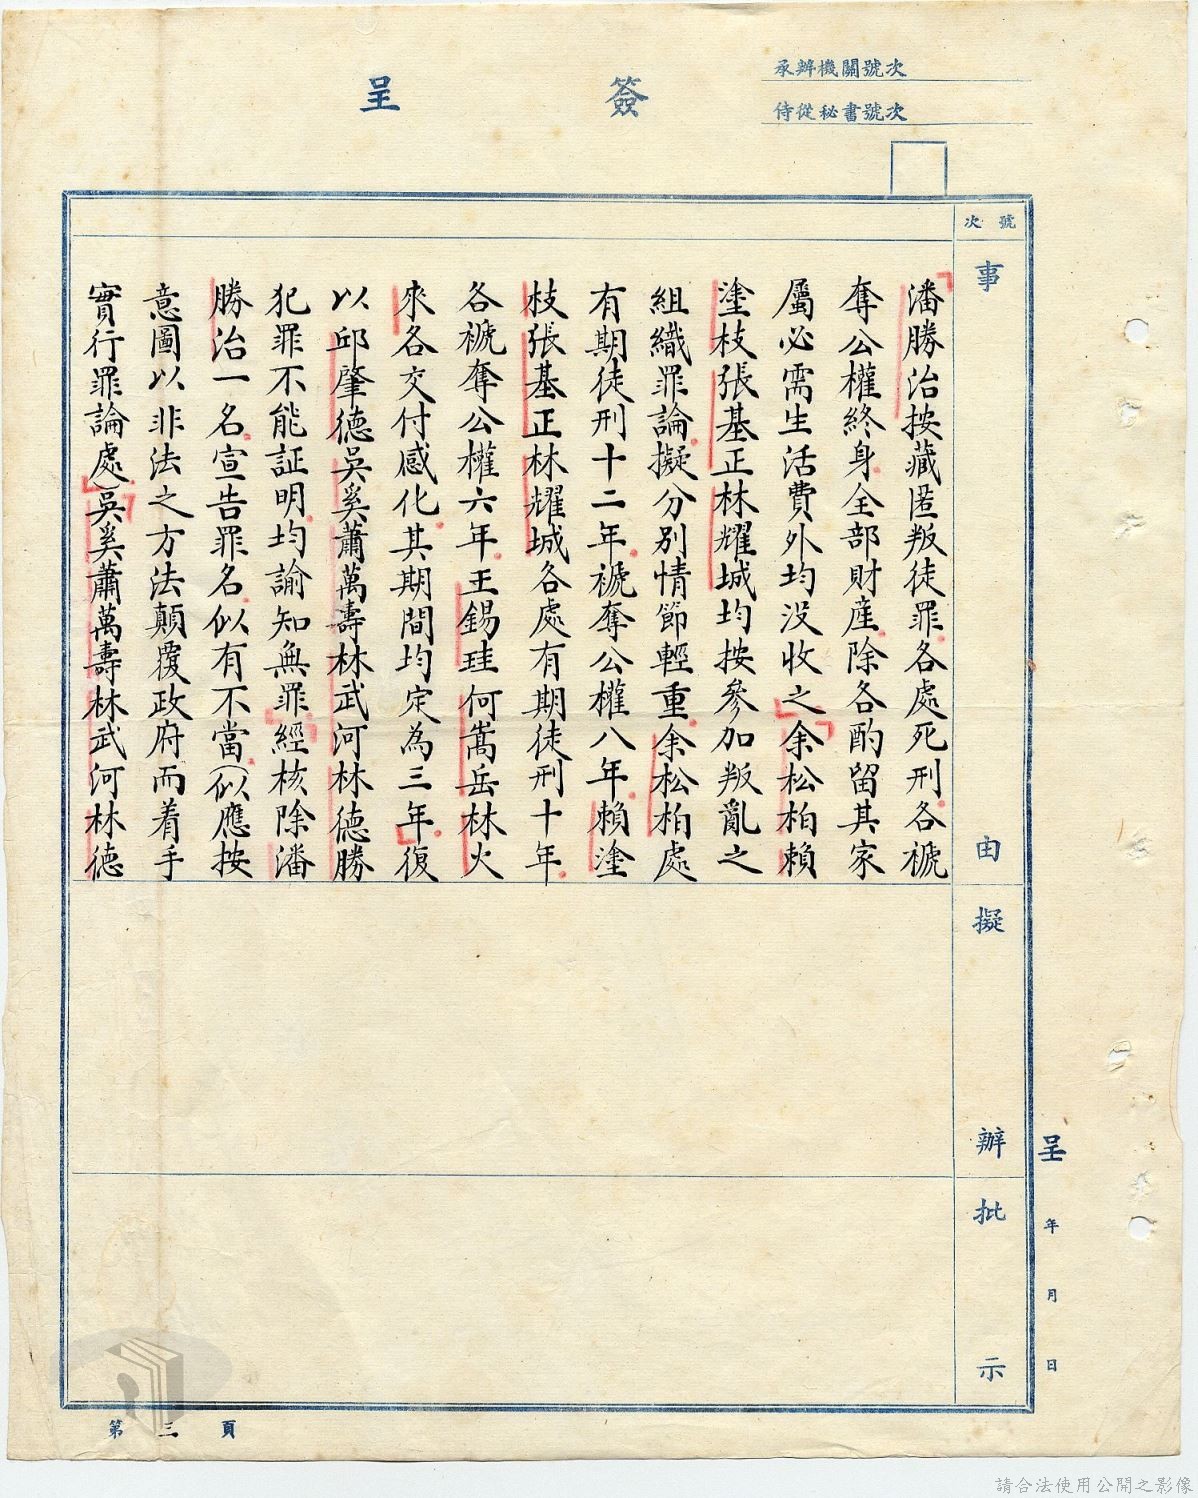 承辦機關號次
侍從秘書號次
簽呈
號次
事由
擬辦
批示
潘勝治按藏匿叛徒罪各處死刑各褫
奪公權終身全部財產除各酌留其家
屬必需生活費外均沒收之余松柏賴
塗枝張基正林耀城均按參加叛亂之
組織罪論擬分別情節輕重余松柏處
有期徒刑十二年褫奪公權八年賴塗
枝張基正林耀城各處有期徒刑十年
各褫奪公權六年王錫珪何嵩岳林火
來各交付感化其期間均定為三年復
以邱肇德吳奚蕭萬壽林武河林德勝
犯罪不能証明均諭知無罪經核除潘
勝治一名宣告罪名似有不當(似應按
意圖以非法之方法顛覆政府而着手
實行罪論處)吳奚蕭萬壽林武河林德
呈 年 月 日
第三頁
請合法使用公開之影像